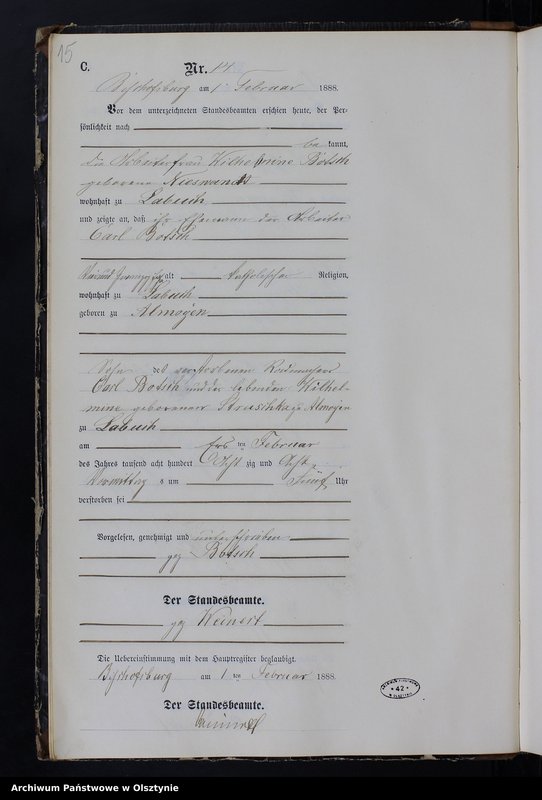 15
C. Nr. 14
Bischofsburg am 1 Februar 1888.
Vor dem unterzeichneten Standesbeamten erschien heute, der Per-
sönlichkeit nach
be kannt,
die Arbeiterfrau Wilhelmine Botsch
geborene
wohnhaft zu Labuch
und zeigte an, daß ihr Ehemann der Arbeiter
Carl Botsch
alt katholischer Religion,
wohnhaft zu Labuch
geboren zu Almoyen
Sohn des verstorbenen
Carl Botsch und der lebenden Wilhel-
mine geborenen Almoyen
zu Labuch
am ersten Februar
des Jahres tausend acht hundert Acht zig und Acht
Vormittag s um fünf Uhr
verstorben sei
Vorgelesen, genehmigt und unterschrieben
gez Botsch
Der Standesbeamte.
gez Weinert
Die Uebereinstimmung mit dem Hauptregister beglaubigt.
Bischofsburg am 1 ten Februar 1888.
Der Standesbeamte.
42
Archiwum Państwowe w Olsztynie